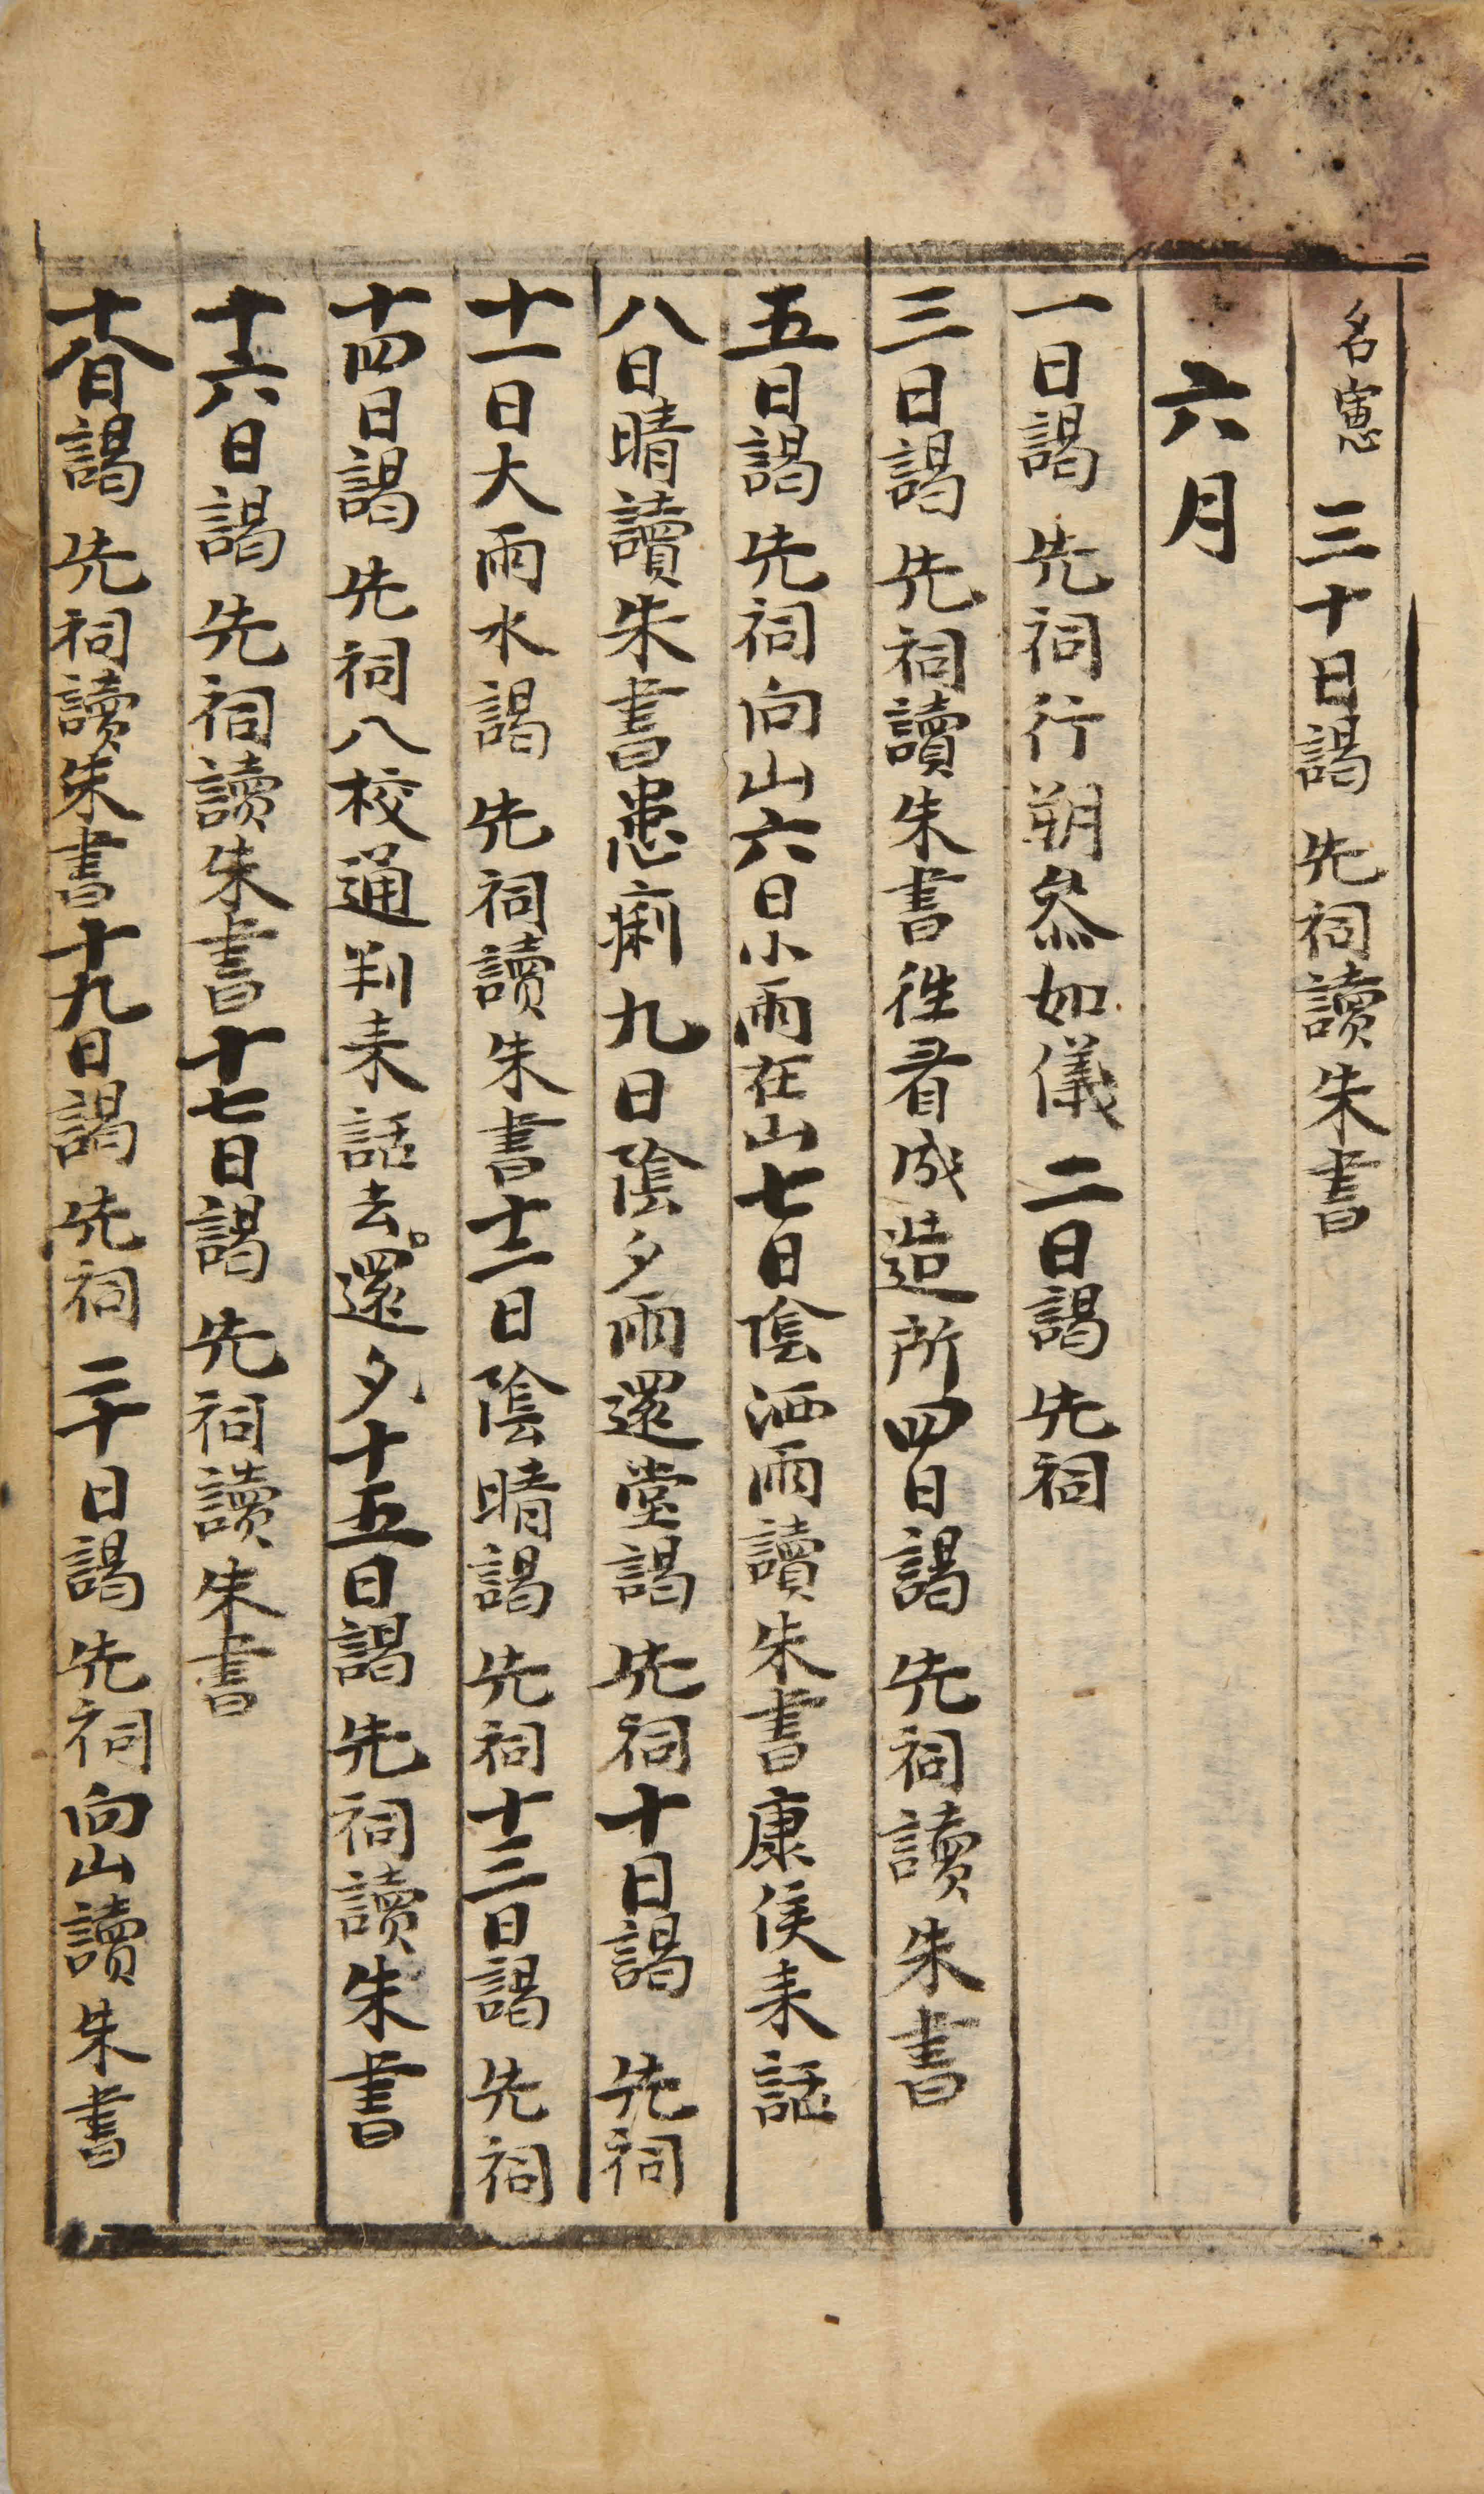 名寭 三十日謁 先祠讀朱書
六月
一日謁 先祠行朔叅如儀 二日謁 先祠
三日謁 先祠讀朱書徃看成造所四日謁 先祠讀朱書
五日謁 先祠向山六日小雨在山七日陰洒雨讀朱書康侯来話
八日晴讀朱書患痢九日陰夕雨還堂謁 先祠十日謁 先祠
十一日大雨水謁 先祠讀朱書十二日陰晴謁 先祠十三日謁 先祠
十四日謁 先祠八校通判来話去還夕十五日謁 先祠讀朱書
十六日謁 先祠讀朱書十七日謁 先祠讀朱書
十八日謁 先祠讀朱書十九日謁 先祠 二十日謁 先祠向山讀朱書